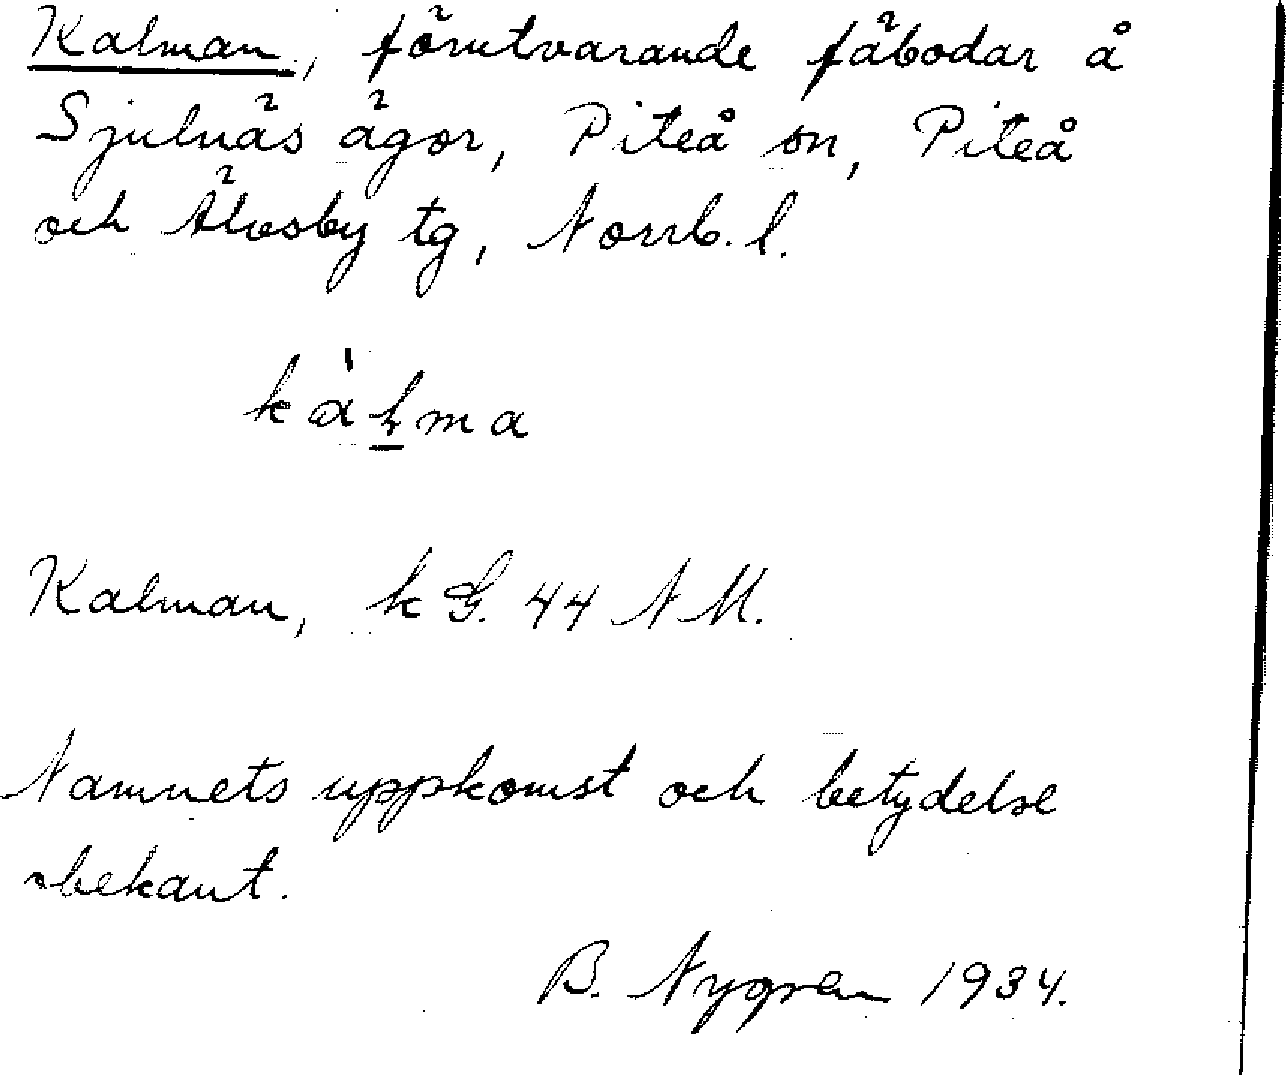 Kalman, förutvarande fäbodar å
Sjulnäs ägor, Piteå sn, Piteå
och Älvsby tg, Norrb. l.
kàḻma
Kalman, k G. 44 N M.
Namnets uppkomst och betydelse
obekant.
B. Nygren 1934.